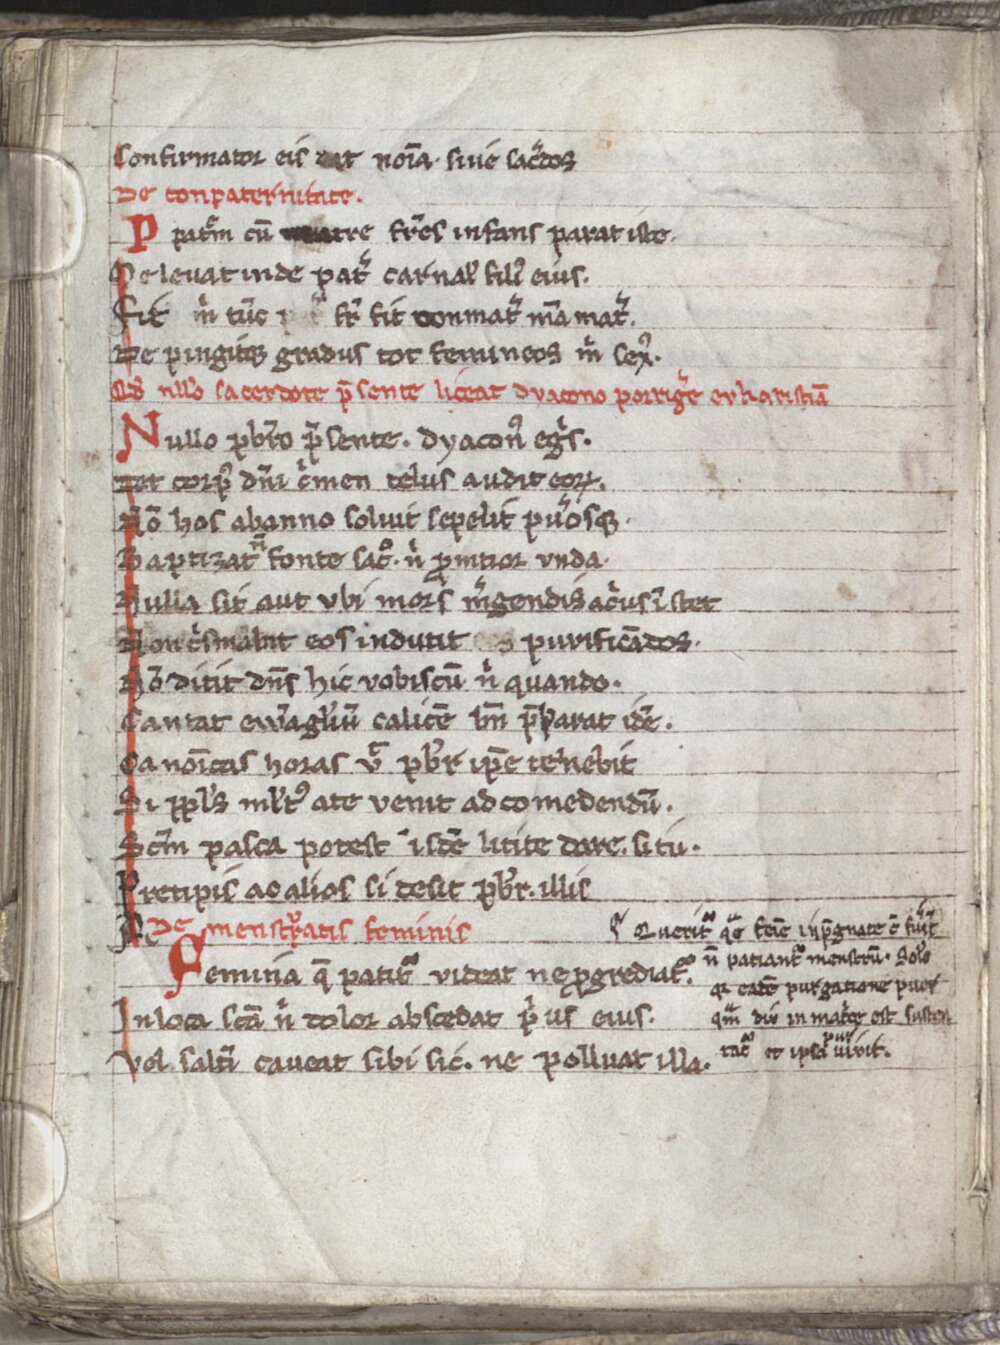 Confirmator eis dat noīa. sive sac̄dos
De conpaternitate.
P pat̄m cū matre fr̄es infans parat iste.
Se levat inde pat̄ carnal' fili' eius.
Fit m̄ tūc fr̄ fit conmat̄ mīa mat̄.
De pingitq; gradus tot femineos m̄ sex'.
Qd nllo sacerdote p̄sente liceat dyacono porriḡe evkaristiā
Nullo pbr̄o p̄sente. dyacon' eḡs.
Det corp' dn̄i c̄men telus audit eor.
Nō hos abanno solvit sepelit pv̄osq;.
Baptizat n̄ fonte sac̄o. n̄ p̄mitior vnda.
Nulla sit aut vbi mors m̄gendis ac̄usīstet
Non c̄smabit eos induit purificādos.
Nō dicit dn̄s hic vobiscū n̄ quando.
Cantat ewāgliū calicē bn̄ p̄parat idē.
Canoīcas horas vt̄ pbr̄ ip̄e tenebit
Si pplūs mlt' ate venit ad comedendū.
Scm̄ pasca potest isdē licite dare. si tu.
Precipis ac alios si desit pbr̄. illis
De menstrvatis feminis
Femina q̄ patit̄ videat ne p̄grediat̄.
In loca scā n̄ color abscedat p̄'us eius.
Vol saltī caveat sibi sic. ne pollvat illa.
Querit̄ q̄e feīe inp̄gnate c̄
n̄ patiant̄ menstrū. Solo
q̄ eadē purgatione puer
qm̄ diu in mat̄ce est susten
tat̄ et ipsa pur vivit.